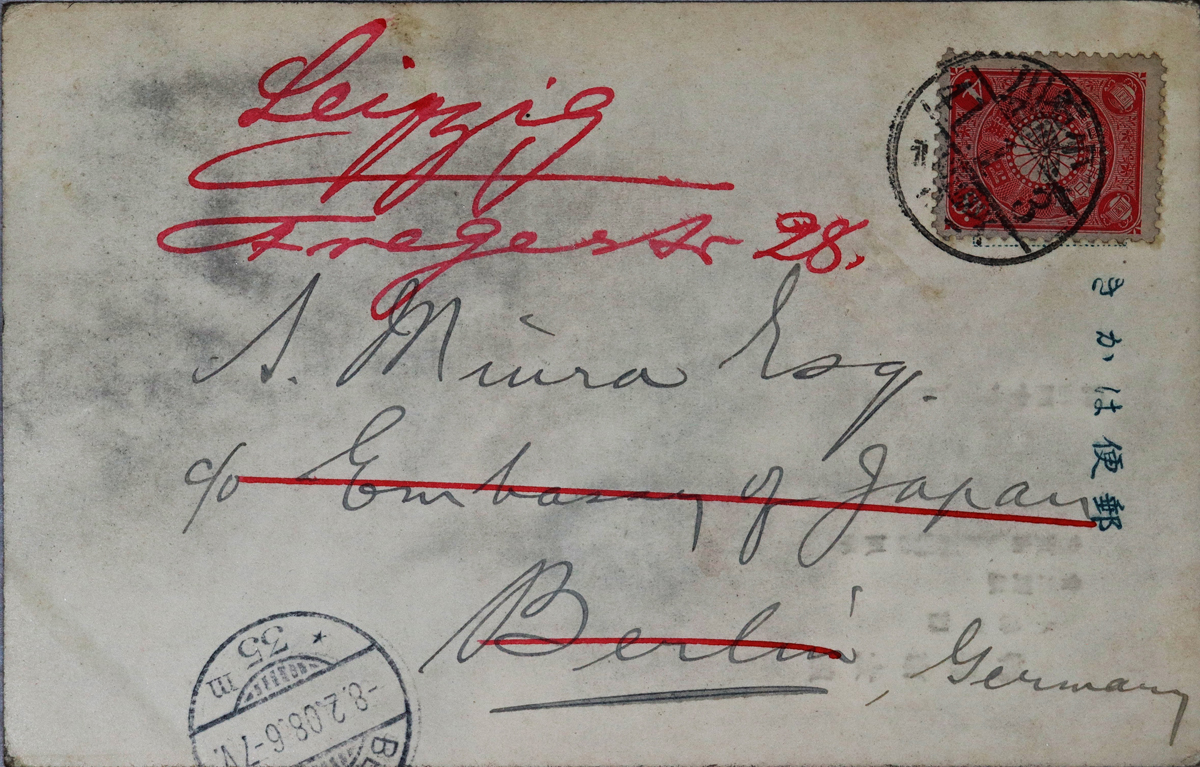 Leipzig
Fregestr 28.
S. Miura Esq.
c/o Embassy of Japan
Berlin, Germany
きかは便郵
* 35 m
-8.2.08.6-7V.
BE